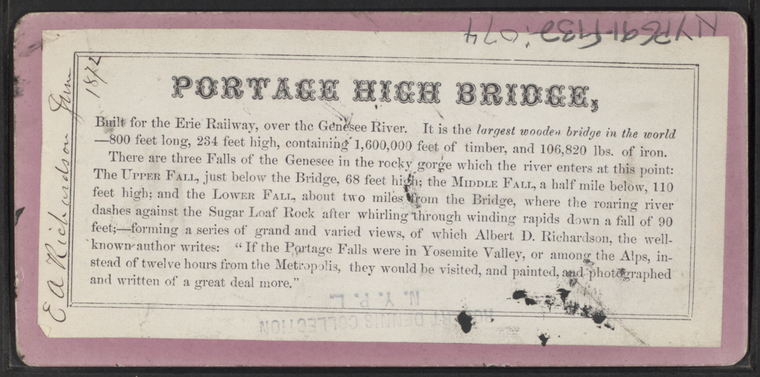 PORTAGE HIGH BRIDGE,
Built for the Erie Railway, over the Genesee River. It is the largest wooden bridge in the world
—800 feet long, 234 feet high, containing 1,600,000 feet of timber, and 106,820 lbs. of iron.
There are three Falls of the Genesee in the rocky gorge which the river enters at this point:
The UPPER FALL, just below the Bridge, 68 feet high; the MIDDLE FALL, a half mile below, 110
feet high; and the LOWER FALL, about two miles from the Bridge, where the roaring river
dashes against the Sugar Loaf Rock after whirling through winding rapids down a fall of 90
feet;—forming a series of grand and varied views, of which Albert D. Richardson, the well-
known author writes: "If the Portage Falls were in Yosemite Valley, or among the Alps, in-
stead of twelve hours from the Metropolis, they would be visited, and painted, and photographed
and written of a great deal more."
E A Richardson
1872
ROBERT DENNIS COLLECTION
N. Y. P. L.